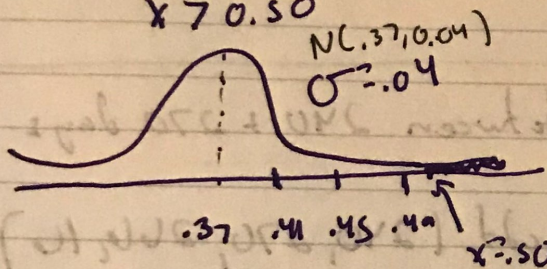 x > 0.50
N(.37, 0.04)
σ = .04
.37 .41 .45 .49
x = .50